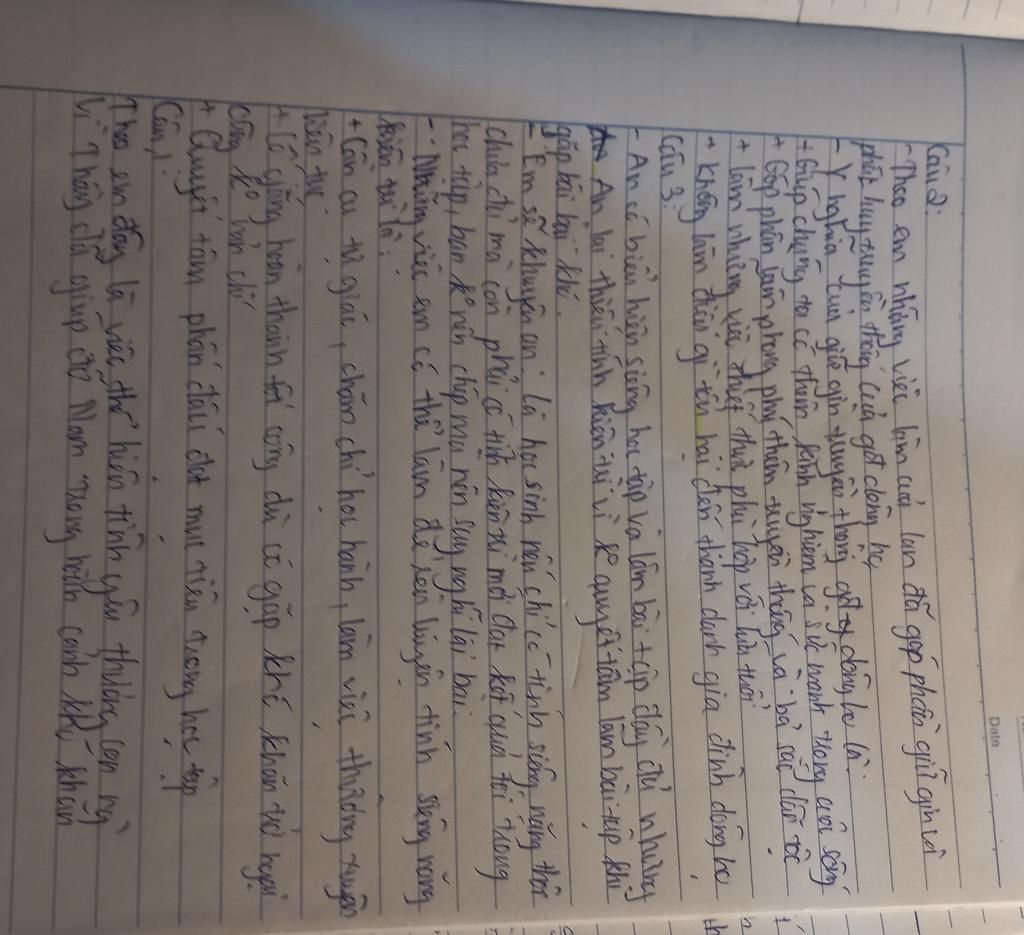 Date
Câu 2:
- Theo em những việc làm của lan đã góp phần giữ gìn và
phát huy truyền thống của gđ dòng họ,
- Ý nghĩa của giữ gìn truyền thống gđ dòng họ là:
+ Giúp chúng ta có thêm kinh nghiệm và sức mạnh trong cuộc sống
+ Góp phần làm phong phú thêm truyền thống và bả sắc dân tộc
+ làm những việc thiết thực phù hợp với lứa tuổi
+ không làm điều gì tổn hại đến thanh danh gia đình dòng họ
Câu 3:
- An có biểu hiện siêng học tập và làm bài tập đầy đủ nhưng
An lại thiếu tính kiên trì vì k quyết tâm làm bài tập khi
gặp bài bài khó.
- Em sẽ khuyên an: là học sinh nếu chỉ có tính siêng năng thôi
chưa đủ mà còn phải có tính kiên trì mới đạt kết quả tốt trong
học tập, bạn k nên chép mà nên suy nghĩ lại bài.
- Những việc em có thể làm để rèn luyện tính siêng năng
kiên trì là:
+ Cần cù tự giác, chăm chỉ học hành, làm việc thường xuyên
liên tục.
+ Cố gắng hoàn thành tốt công dù có gặp khó khăn trở ngại
cũng ko nản chí
+ Quyết tâm phấn đấu đạt mục tiêu trong học tập
Câu 1
Theo em đây là việc thể hiện tình yêu thương con ng
Vì Thắng đã giúp đỡ Nam trong hoàn cảnh khó khăn